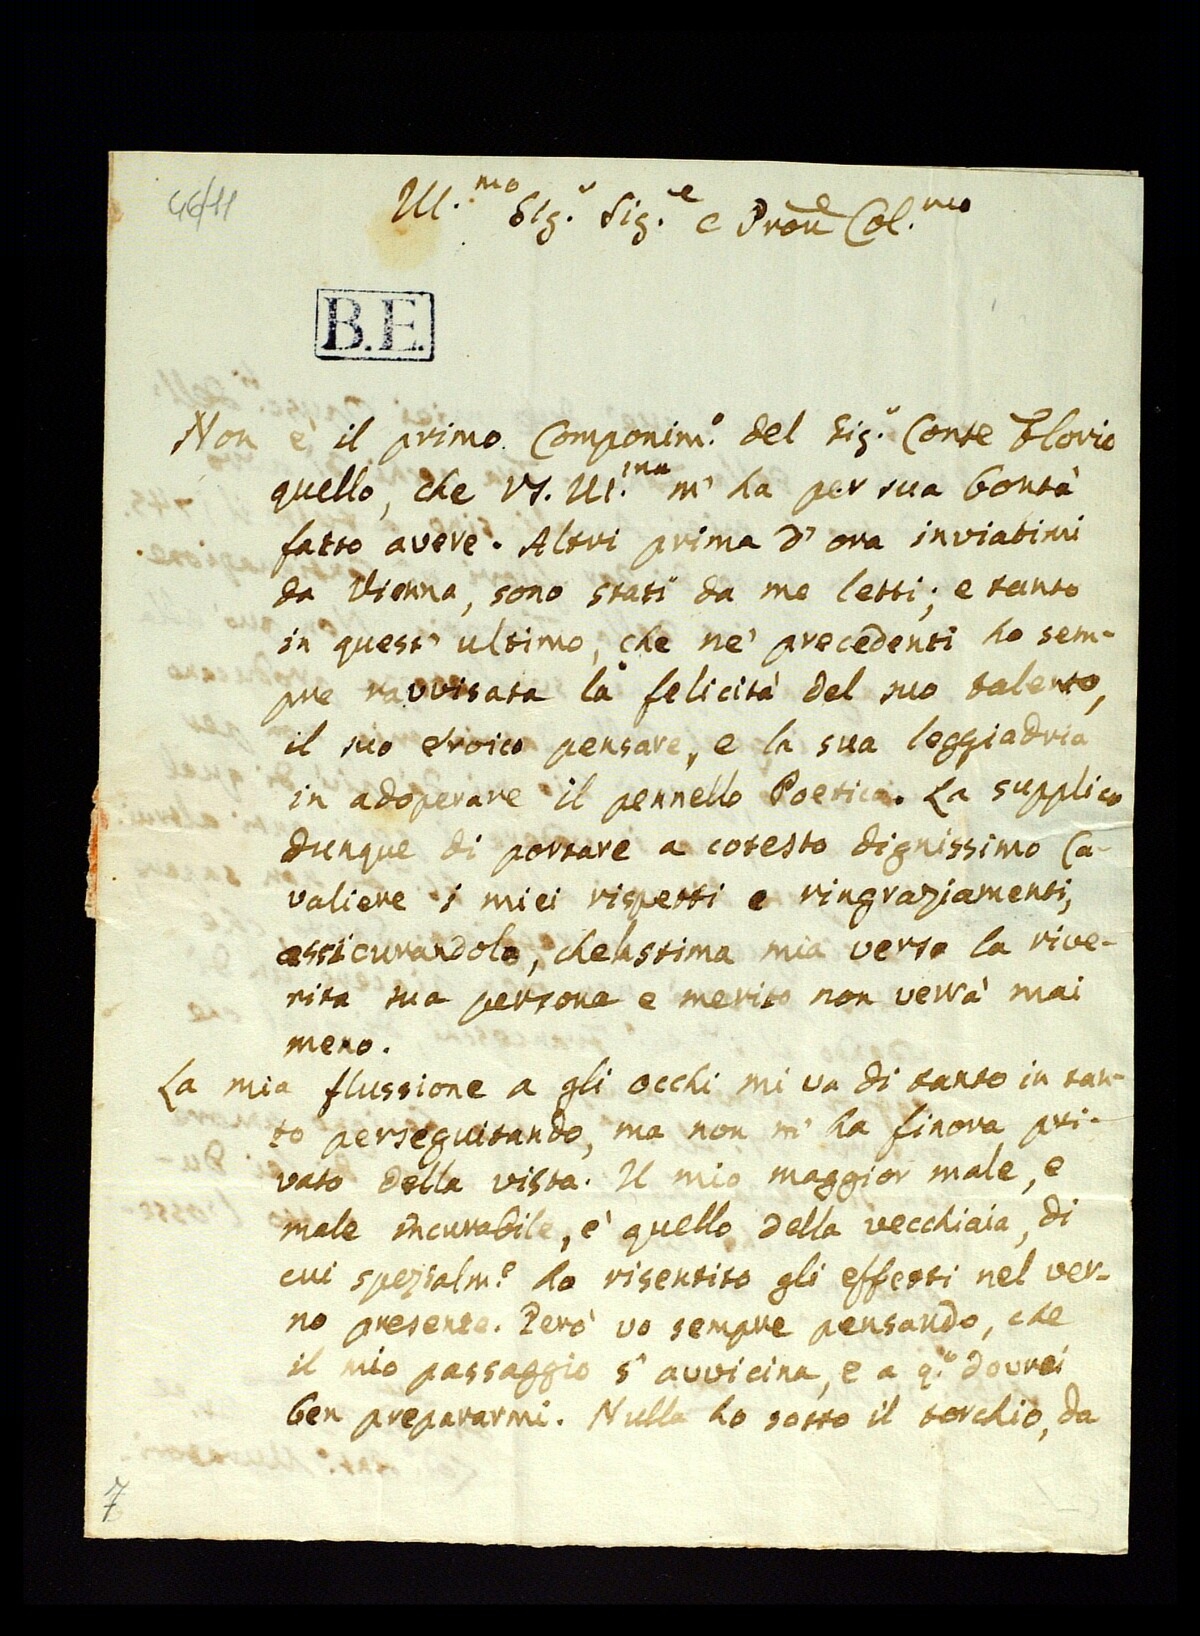 46/11
Ill.mo Sig.r Sig.e e Pron.e Col.mo
B.E.
Non è il primo Componim.o del Sig.r Conte Florio
quello, che VS. Ill.ma m' ha per sua bontà
fatto avere. Altri prima d' ora inviatimi
da Vienna, sono stati da me letti; e tanto
in quest' ultimo, che ne' precedenti ho sem-
pre ravvisata la felicità del suo talento,
il suo eroico pensare, e la sua leggiadria
in adoperare il pennello Poetico. La supplico
dunque di portare a cotesto dignissimo Ca-
valiere i miei rispetti e ringraziamenti,
assicurandolo, che la stima mia verso la rive-
rita sua persona e merito non verrà mai
meno.
La mia flussione a gli occhi mi va di tanto in tan-
to perseguitando, ma non m' ha finora pri-
vato della vista. Il mio maggior male, e
male incurabile, è quello della vecchiaia, di
cui spezialm.e ho risentito gli effetti nel ver-
no presente. Però vo sempre pensando, che
il mio passaggio s' avvicina, e a q.o dovrei
ben prepararmi. Nulla ho sotto il torchio, da
7